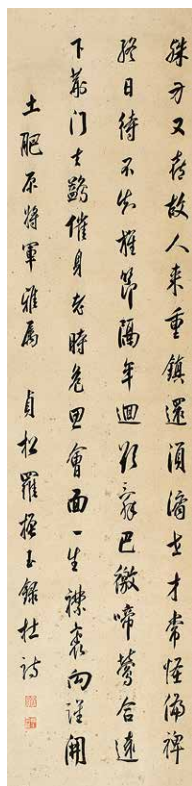 殊方又喜故人来重鎮還須濟世才常怪偏裨
終日待不知旌節隔年迴欲辭巴徼啼鶯合遠
下荊門去鷁催身老時危思會面一生襟袌向誰開
土肥原將軍雅属 貞松羅振玉錄杜詩